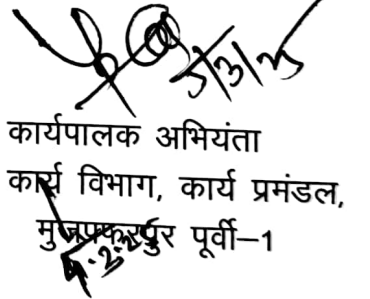 5/3/25
कार्यपालक अभियंता
कार्य विभाग, कार्य प्रमंडल,
मुजफ्फरपुर पूर्वी–1